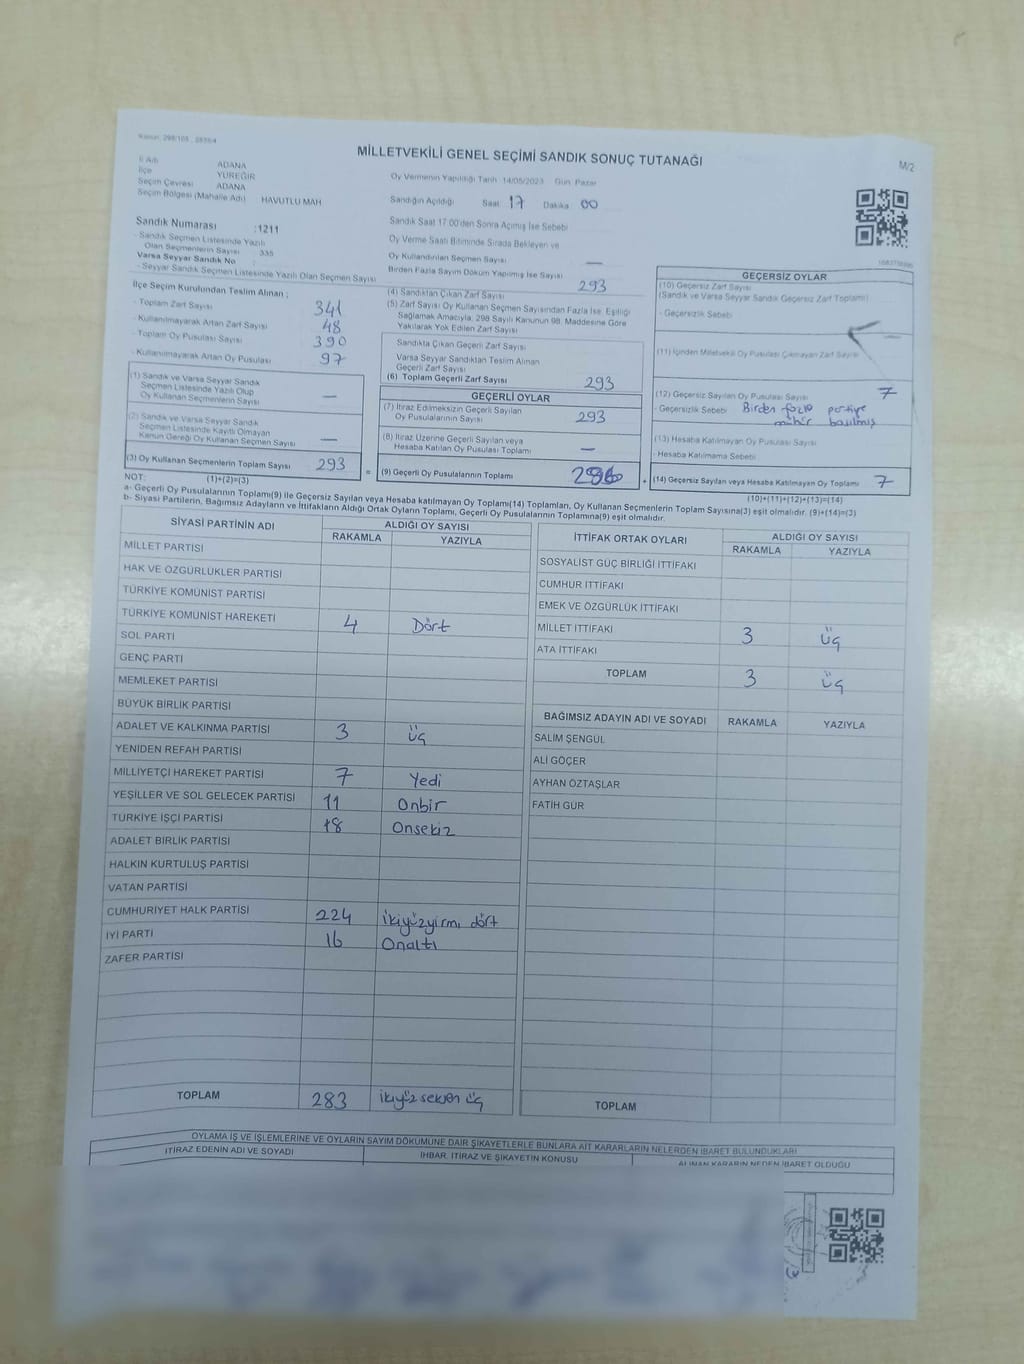 MİLLETVEKİLİ GENEL SEÇİMİ SANDIK SONUÇ TUTANAĞI
M/2
İl Adı ADANA
İlçe YÜREĞİR
Seçim Çevresi ADANA
Seçim Bölgesi (Mahalle Adı) HAVUTLU MAH
Sandık Numarası :1211
- Sandık Seçmen Listesinde Yazılı
Olan Seçmenlerin Sayısı 335
Varsa Seyyar Sandık No :
- Seyyar Sandık Seçmen Listesinde Yazılı Olan Seçmen Sayısı
İlçe Seçim Kurulundan Teslim Alınan ;
- Toplam Zarf Sayısı 341
- Kullanılmayarak Artan Zarf Sayısı 48
- Toplam Oy Pusulası Sayısı 390
- Kullanılmayarak Artan Oy Pusulası 97
(1) Sandık ve Varsa Seyyar Sandık
Seçmen Listesinde Yazılı Olup
Oy Kullanan Seçmenlerin Sayısı —
(2) Sandık ve Varsa Seyyar Sandık
Seçmen Listesinde Kayıtlı Olmayan
Kanun Gereği Oy Kullanan Seçmen Sayısı —
(3) Oy Kullanan Seçmenlerin Toplam Sayısı 293
Oy Vermenin Yapıldığı Tarih 14/05/2023 Gün Pazar
Sandığın Açıldığı Saat 17 Dakika 00
Sandık Saat 17:00'den Sonra Açılmış İse Sebebi
Oy Verme Saati Bitiminde Sırada Bekleyen ve
Oy Kullandırılan Seçmen Sayısı —
Birden Fazla Sayım Döküm Yapılmış İse Sayısı
(4) Sandıktan Çıkan Zarf Sayısı 293
(5) Zarf Sayısı Oy Kullanan Seçmen Sayısından Fazla İse, Eşitliği
Sağlamak Amacıyla; 298 Sayılı Kanunun 98. Maddesine Göre
Yakılarak Yok Edilen Zarf Sayısı
Sandıkta Çıkan Geçerli Zarf Sayısı
Varsa Seyyar Sandıktan Teslim Alınan
Geçerli Zarf Sayısı
(6) Toplam Geçerli Zarf Sayısı 293
GEÇERLİ OYLAR
(7) İtiraz Edilmeksizin Geçerli Sayılan
Oy Pusulalarının Sayısı 293
(8) İtiraz Üzerine Geçerli Sayılan veya
Hesaba Katılan Oy Pusulası Toplamı —
= (9) Geçerli Oy Pusulalarının Toplamı
GEÇERSİZ OYLAR
(10) Geçersiz Zarf Sayısı
(Sandık ve Varsa Seyyar Sandık Geçersiz Zarf Toplamı)
- Geçersizlik Sebebi
(11) İçinden Milletvekili Oy Pusulası Çıkmayan Zarf Sayısı
(12) Geçersiz Sayılan Oy Pusulası Sayısı 7
- Geçersizlik Sebebi Birden fazla partiye
mühür basılmış
(13) Hesaba Katılmayan Oy Pusulası Sayısı
- Hesaba Katılmama Sebebi
+ (14) Geçersiz Sayılan veya Hesaba Katılmayan Oy Toplamı 7
NOT: (1)+(2)=(3)
(10)+(11)+(12)+(13)=(14)
a- Geçerli Oy Pusulalarının Toplamı(9) ile Geçersiz Sayılan veya Hesaba katılmayan Oy Toplamı(14) Toplamları, Oy Kullanan Seçmenlerin Toplam Sayısına(3) eşit olmalıdır. (9)+(14)=(3)
b- Siyasi Partilerin, Bağımsız Adayların ve İttifakların Aldığı Ortak Oyların Toplamı, Geçerli Oy Pusulalarının Toplamına(9) eşit olmalıdır.
SİYASİ PARTİNİN ADI ALDIĞI OY SAYISI
RAKAMLA YAZIYLA
MİLLET PARTİSİ
HAK VE ÖZGÜRLÜKLER PARTİSİ
TÜRKİYE KOMÜNİST PARTİSİ
TÜRKİYE KOMÜNİST HAREKETİ 4 Dört
SOL PARTİ
GENÇ PARTİ
MEMLEKET PARTİSİ
BÜYÜK BİRLİK PARTİSİ
ADALET VE KALKINMA PARTİSİ 3 üç
YENİDEN REFAH PARTİSİ
MİLLİYETÇİ HAREKET PARTİSİ 7 Yedi
YEŞİLLER VE SOL GELECEK PARTİSİ 11 Onbir
TÜRKİYE İŞÇİ PARTİSİ 18 Onsekiz
ADALET BİRLİK PARTİSİ
HALKIN KURTULUŞ PARTİSİ
VATAN PARTİSİ
CUMHURİYET HALK PARTİSİ 224 ikiyüzyirmi dört
İYİ PARTİ 16 Onaltı
ZAFER PARTİSİ
TOPLAM 283 ikiyüz seksen üç
İTTİFAK ORTAK OYLARI ALDIĞI OY SAYISI
RAKAMLA YAZIYLA
SOSYALİST GÜÇ BİRLİĞİ İTTİFAKI
CUMHUR İTTİFAKI
EMEK VE ÖZGÜRLÜK İTTİFAKI
MİLLET İTTİFAKI 3 üç
ATA İTTİFAKI
TOPLAM 3 üç
BAĞIMSIZ ADAYIN ADI VE SOYADI RAKAMLA YAZIYLA
SALİM ŞENGÜL
ALİ GÖÇER
AYHAN ÖZTAŞLAR
FATİH GÜR
TOPLAM
OYLAMA İŞ VE İŞLEMLERİNE VE OYLARIN SAYIM DÖKÜMÜNE DAİR ŞİKAYETLERLE BUNLARA AİT KARARLARIN NELERDEN İBARET BULUNDUKLARI
İTİRAZ EDENİN ADI VE SOYADI İHBAR, İTİRAZ VE ŞİKAYETİN KONUSU ALINAN KARARIN NEDEN İBARET OLDUĞU